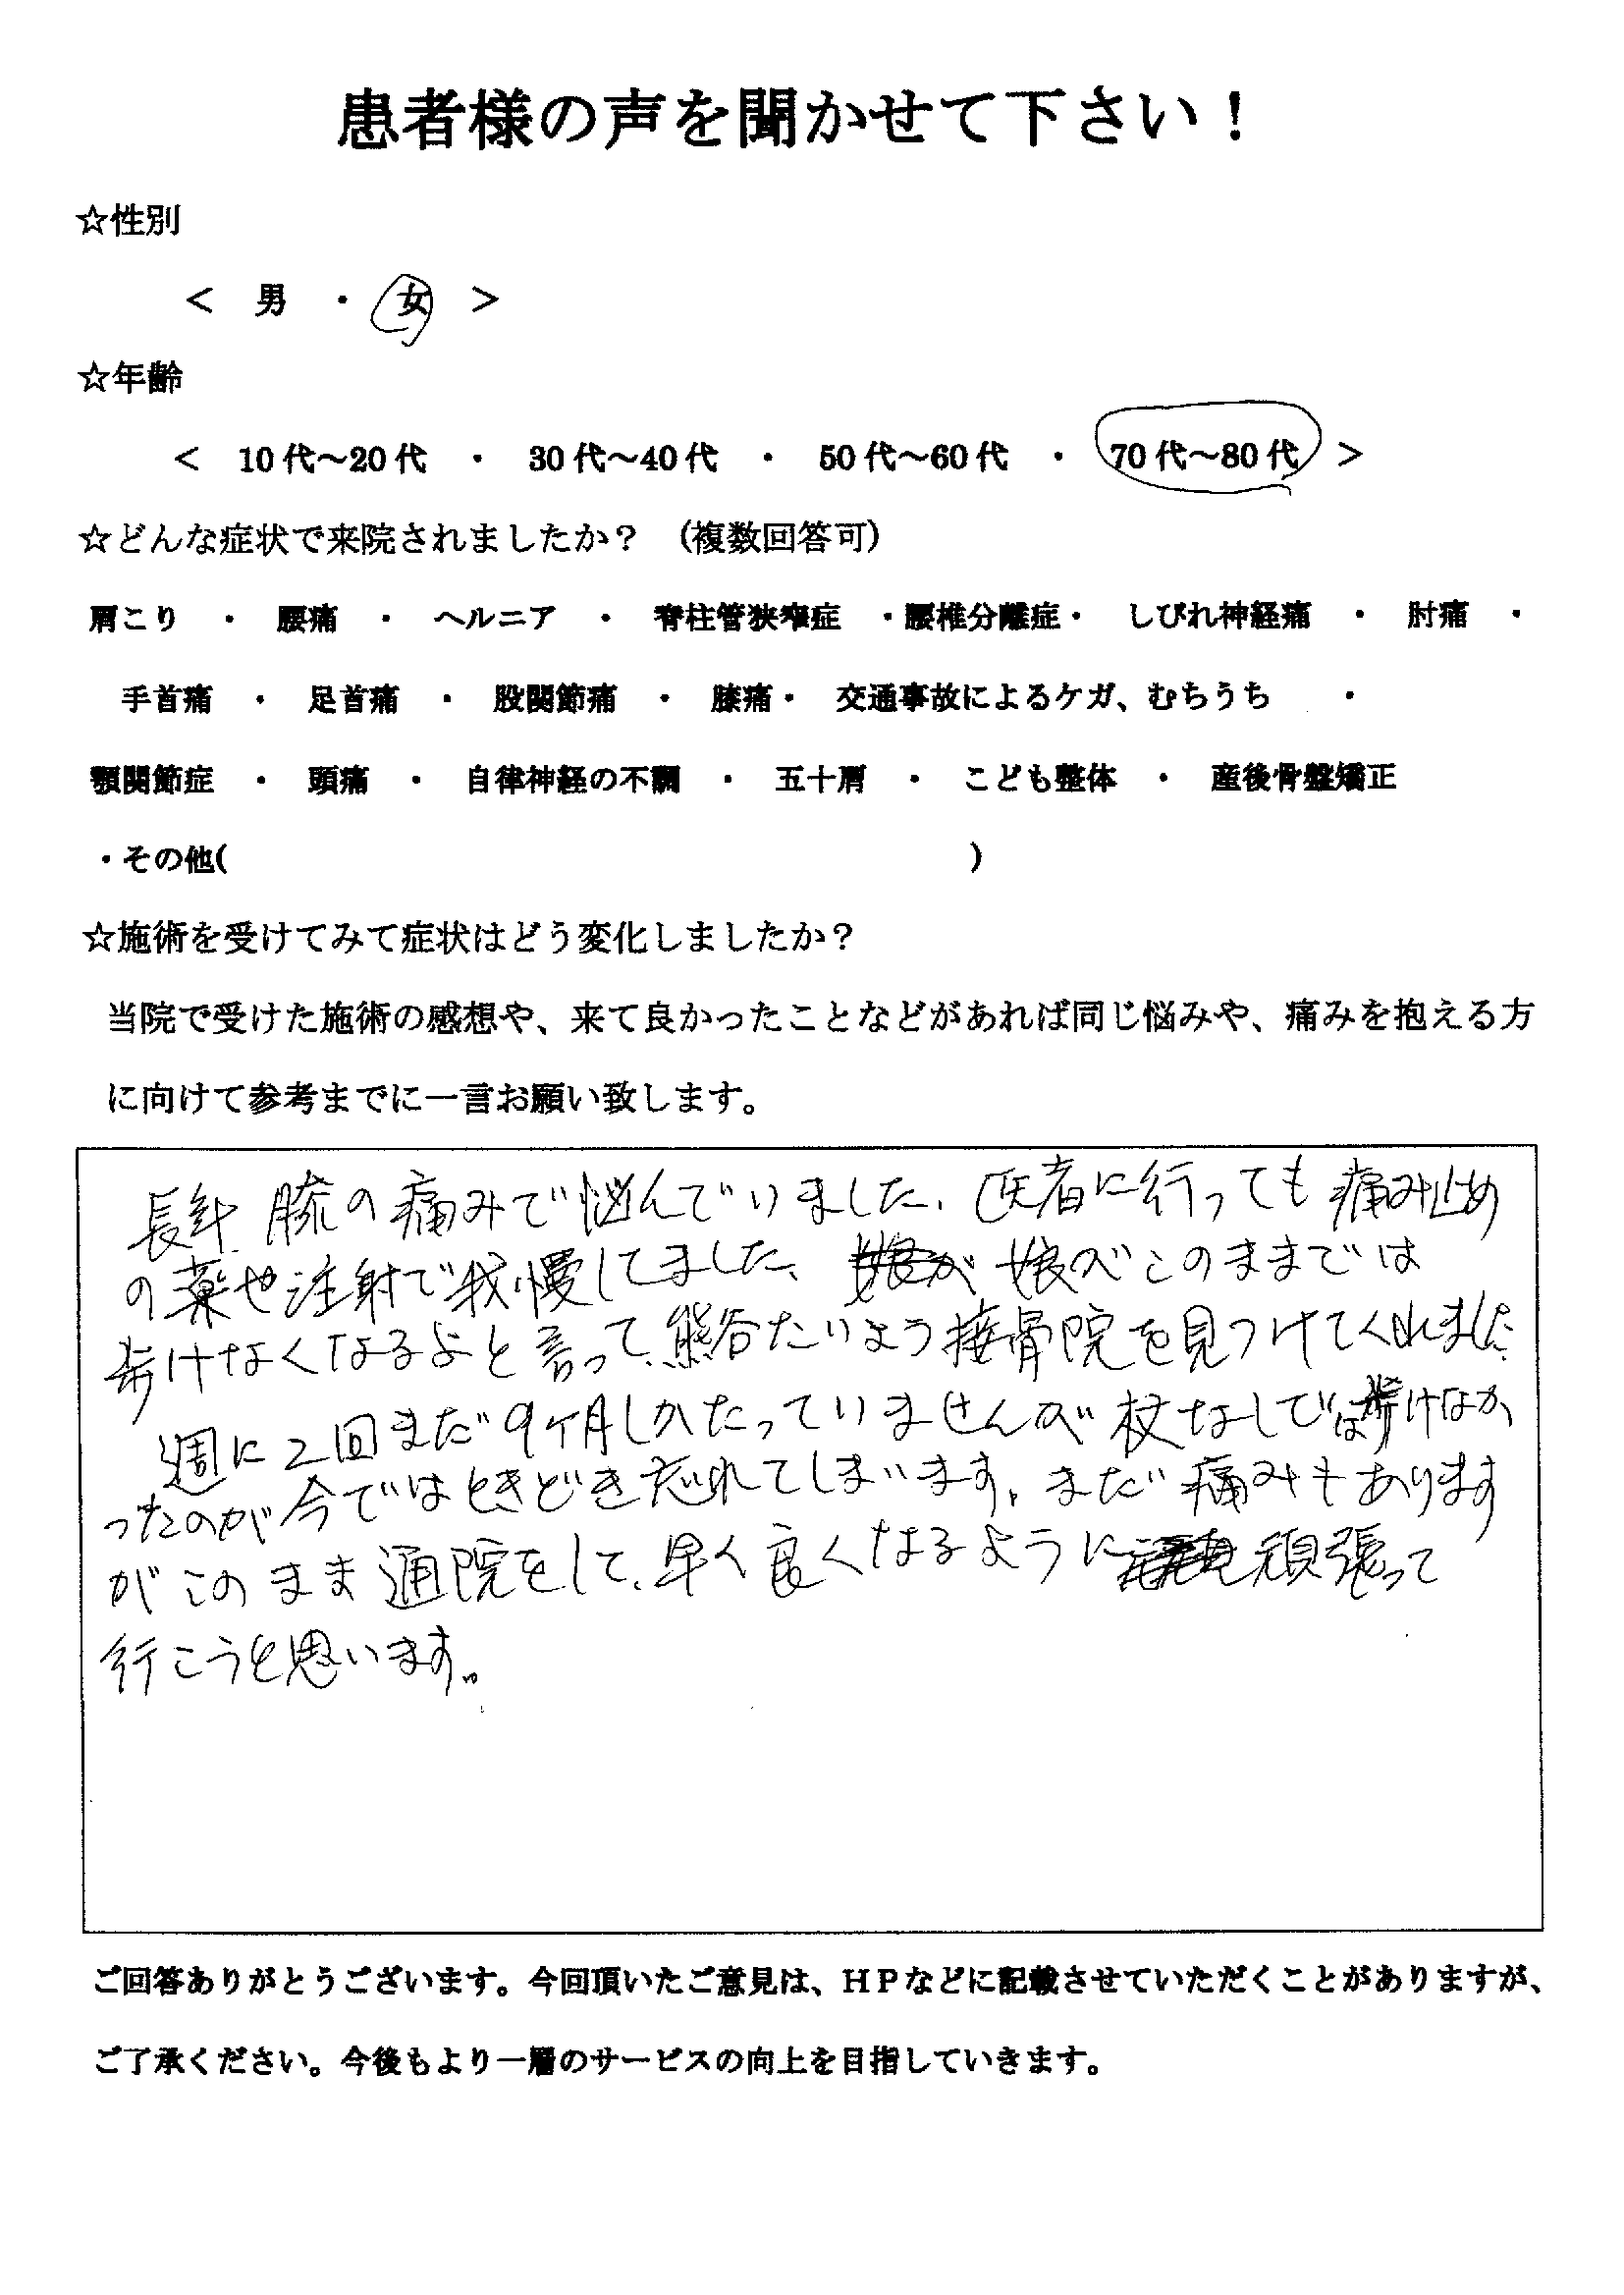 患者様の声を聞かせて下さい！
☆性別
＜ 男 ・ 女 ＞
☆年齢
＜ 10代～20代 ・ 30代～40代 ・ 50代～60代 ・ 70代～80代 ＞
☆どんな症状で来院されましたか？ (複数回答可)
肩こり ・ 腰痛 ・ ヘルニア ・ 脊柱管狭窄症 ・腰椎分離症・ しびれ神経痛 ・ 肘痛 ・
手首痛 ・ 足首痛 ・ 股関節痛 ・ 膝痛・ 交通事故によるケガ、むちうち ・
顎関節症 ・ 頭痛 ・ 自律神経の不調 ・ 五十肩 ・ こども整体 ・ 産後骨盤矯正
・その他( )
☆施術を受けてみて症状はどう変化しましたか？
当院で受けた施術の感想や、来て良かったことなどがあれば同じ悩みや、痛みを抱える方
に向けて参考までに一言お願い致します。
長年 膝の痛みで悩んでいました、医者に行っても痛み止め
の薬や注射で我慢してました、 娘がこのままでは
歩けなくなるよと言って、熊谷たいよう接骨院を見つけてくれました
週に2回まだ9ケ月しかたっていませんが杖なしでは歩けなか
ったのが今ではときどき忘れてしまいます。まだ痛みもあります
がこのまま通院をして、早く良くなるように頑張って
行こうと思います。
ご回答ありがとうございます。今回頂いたご意見は、ＨＰなどに記載させていただくことがありますが、
ご了承ください。今後もより一層のサービスの向上を目指していきます。